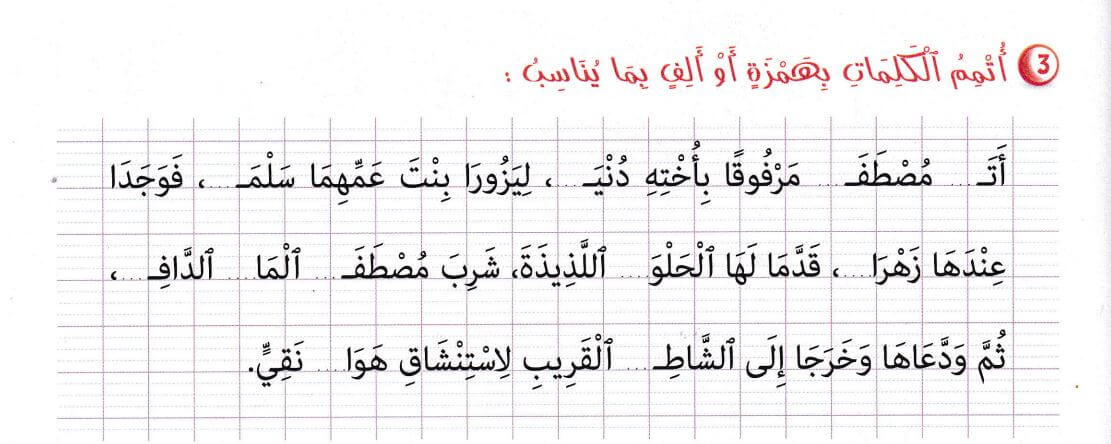 3 أُتْمِمُ ٱلْكَلِمَاتِ بِهَمْزَةٍ أَوْ أَلِفٍ بِمَا يُنَاسِبُ :
أَتَـ... مُصْطَفَـ... مَرْفُوقًا بِأُخْتِهِ دُنْيَـ...، لِيَزُورَا بِنْتَ عَمِّهِمَا سَلْمَـ...، فَوَجَدَا
عِنْدَهَا زَهْرَا...، قَدَّمَا لَهَا ٱلْحَلْوَ... ٱللَّذِيذَةَ، شَرِبَ مُصْطَفَـ... ٱلْمَا... ٱلدَّافِـ...،
ثُمَّ وَدَّعَاهَا وَخَرَجَا إِلَى ٱلشَّاطِـ... ٱلْقَرِيبِ لِاسْتِنْشَاقِ هَوَا... نَقِيٍّ.